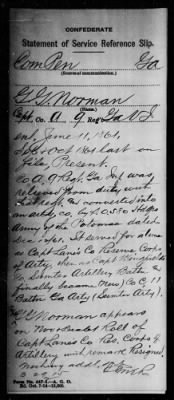 CONFEDERATE
Statement of Service Reference Slip.
Com Pen Ga
(Source of communication.)
G. G. Norman
(Name.)
Capt. Co. A 9 Reg't Ga V I
enl June 11, 1861,
Sept & Oct 1861 last on
file, Present.
Co A 9 Regt. Ga Inf was
relieved from duty with
that regt. & converted into
an arty. co, by S.O. 580 Hdqrs
Army of the Potomac dated
Dec. 1861. It served for a time
as Capt Lane's Co Reserve Corps
of Arty, then as Capt
Co Sumter Artillery Battn &
finally became (new) Co C, 11
Battn Ga Arty (Sumter Arty).
G G Norman appears
on Roll of
Capt Lane's Co Res. Corps of
Artillery with remark Resigned
Nothing addl.
Form No. 447—A. G. O.